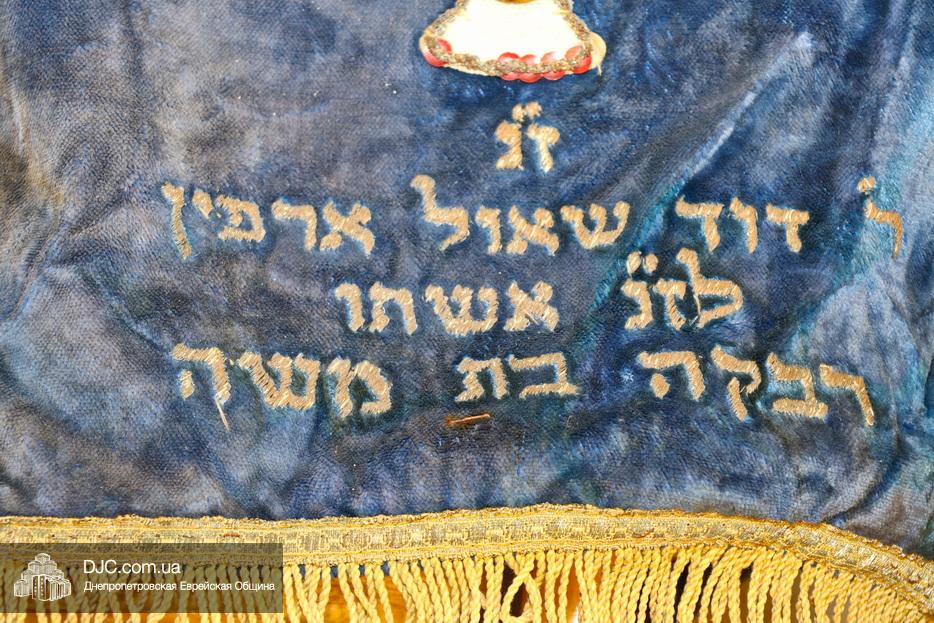 ז"נ
ר' דוד שאול ארפין
לז"נ אשתו
רבקה בת משה
DJC.com.ua
Днепропетровская Еврейская Община